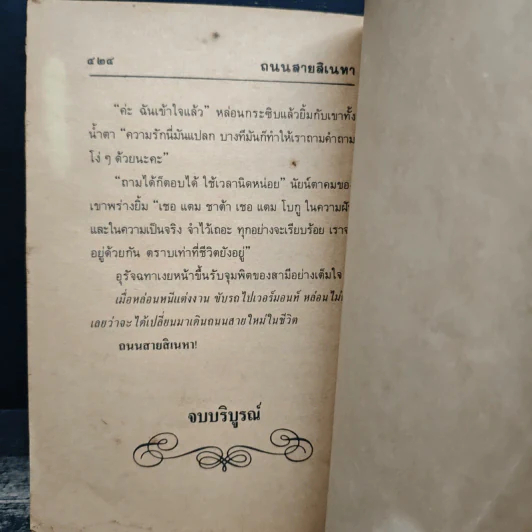 ๔๒๔ ถนนสายสิเนหา
“ค่ะ ฉันเข้าใจแล้ว” หล่อนกระซิบแล้วยิ้มกับเขาทั้ง
น้ำตา “ความรักนี่มันแปลก บางทีมันก็ทำให้เราถามคำถาม
โง่ ๆ ด้วยนะคะ”
“ถามได้ก็ตอบได้ ใช้เวลานิดหน่อย” นัยน์ตาคมขอ
เขาพร่างยิ้ม “เชอ แตม ชาด้า เชอ แตม โบกู ในความฝั
และในความเป็นจริง จำไว้เถอะ ทุกอย่างจะเรียบร้อย เราจ
อยู่ด้วยกัน ตราบเท่าที่ชีวิตยังอยู่”
อุรัจฉทาเงยหน้าขึ้นรับจุมพิตของสามีอย่างเต็มใจ
เมื่อหล่อนหนีแต่งงาน ขับรถไปเวอร์มอนท์ หล่อนไม่
เลยว่าจะได้เปลี่ยนมาเดินถนนสายใหม่ในชีวิต
ถนนสายสิเนหา!
จบบริบูรณ์